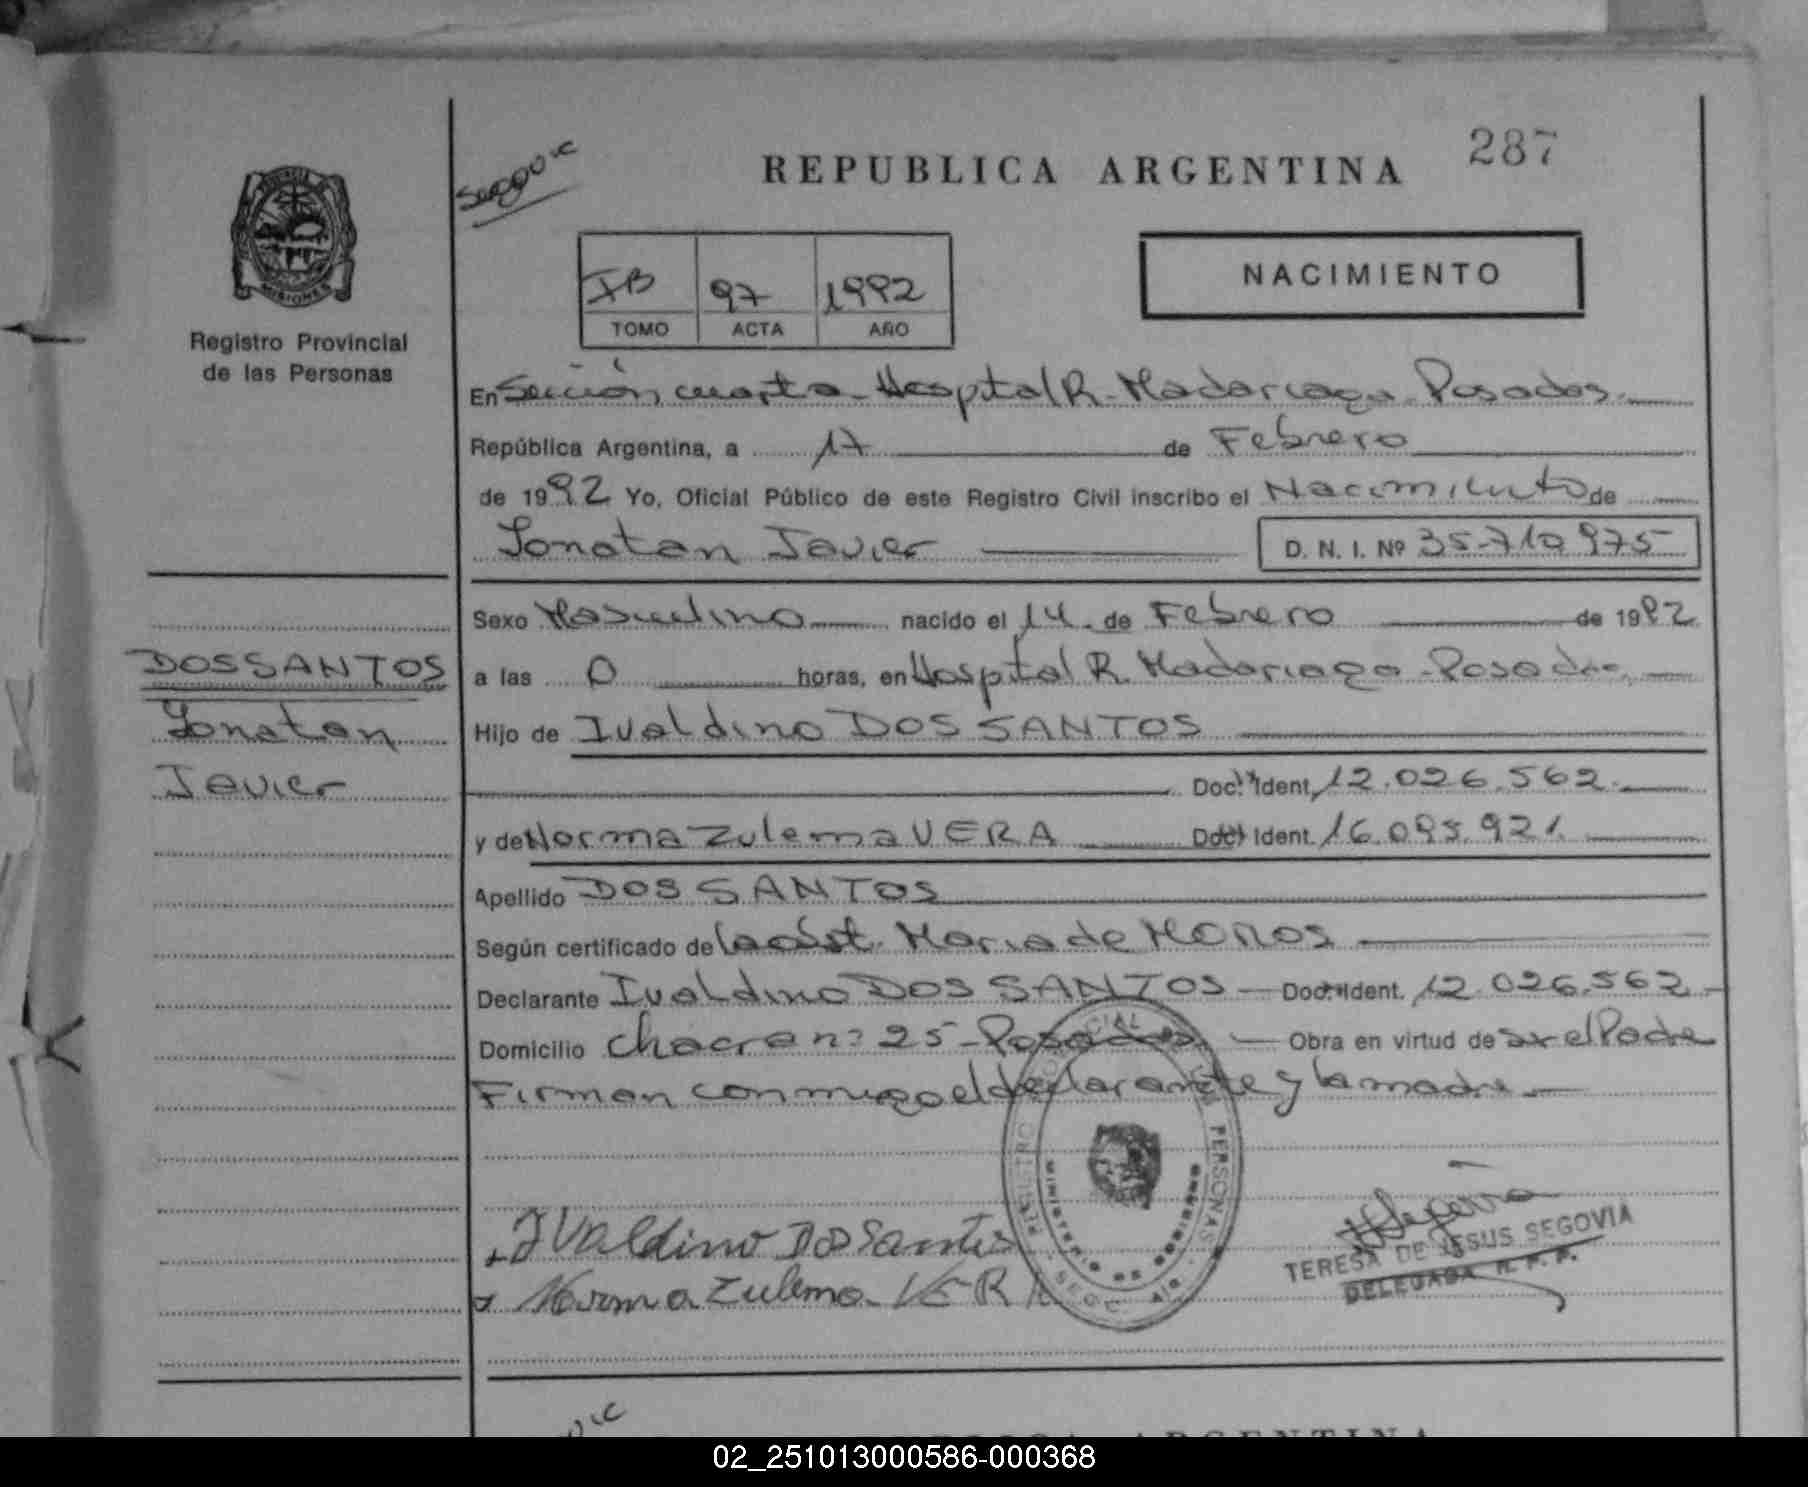 287
REPUBLICA ARGENTINA
PROVINCIA DE MISIONES
Registro Provincial
de las Personas
IB 97 1992
TOMO ACTA AÑO
NACIMIENTO
En Sección cuarta Hospital R. Madariaga Posadas.
República Argentina, a 17 de Febrero
de 1992 Yo, Oficial Público de este Registro Civil inscribo el Nacimiento de
Jonatan Javier D. N. I. Nº 35.710.975
Sexo Masculino nacido el 14 de Febrero de 1992
DOS SANTOS
Jonatan
Javier
a las 0 horas, en Hospital R. Madariaga - Posadas.
Hijo de Ivaldino DOS SANTOS
Doc. Ident. 12.026.562.
y de Norma Zulema VERA Doc. Ident. 16.095.921.
Apellido DOS SANTOS
Según certificado de la obst. Maria de
Declarante Ivaldino DOS SANTOS - Doc. Ident. 12.026.562
Domicilio Chacra nº 25 - Posadas - Obra en virtud de ser el Padre
Firman conmigo el declarante y la madre
Ivaldino Dos Santos
Norma Zulema VERA
TERESA DE JESUS SEGOVIA
DELEGADA R. P. P.
02_251013000586-000368